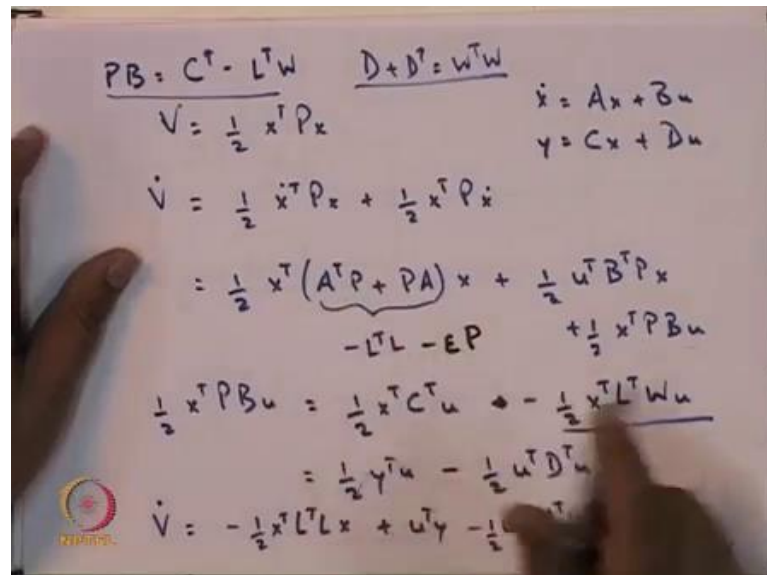 PB = Cᵀ - LᵀW    D + Dᵀ = WᵀW
ẋ = Ax + Bu
V = 1/2 xᵀPx
y = Cx + Du
V̇ = 1/2 ẋᵀPx + 1/2 xᵀPẋ
= 1/2 xᵀ(AᵀP + PA)x + 1/2 uᵀBᵀPx
-LᵀL - εP    + 1/2 xᵀPBu
1/2 xᵀPBu = 1/2 xᵀCᵀu - 1/2 xᵀLᵀWu
= 1/2 yᵀu - 1/2 uᵀDᵀu
V̇ = -1/2 xᵀLᵀLx + uᵀy - 1/2
NPTEL